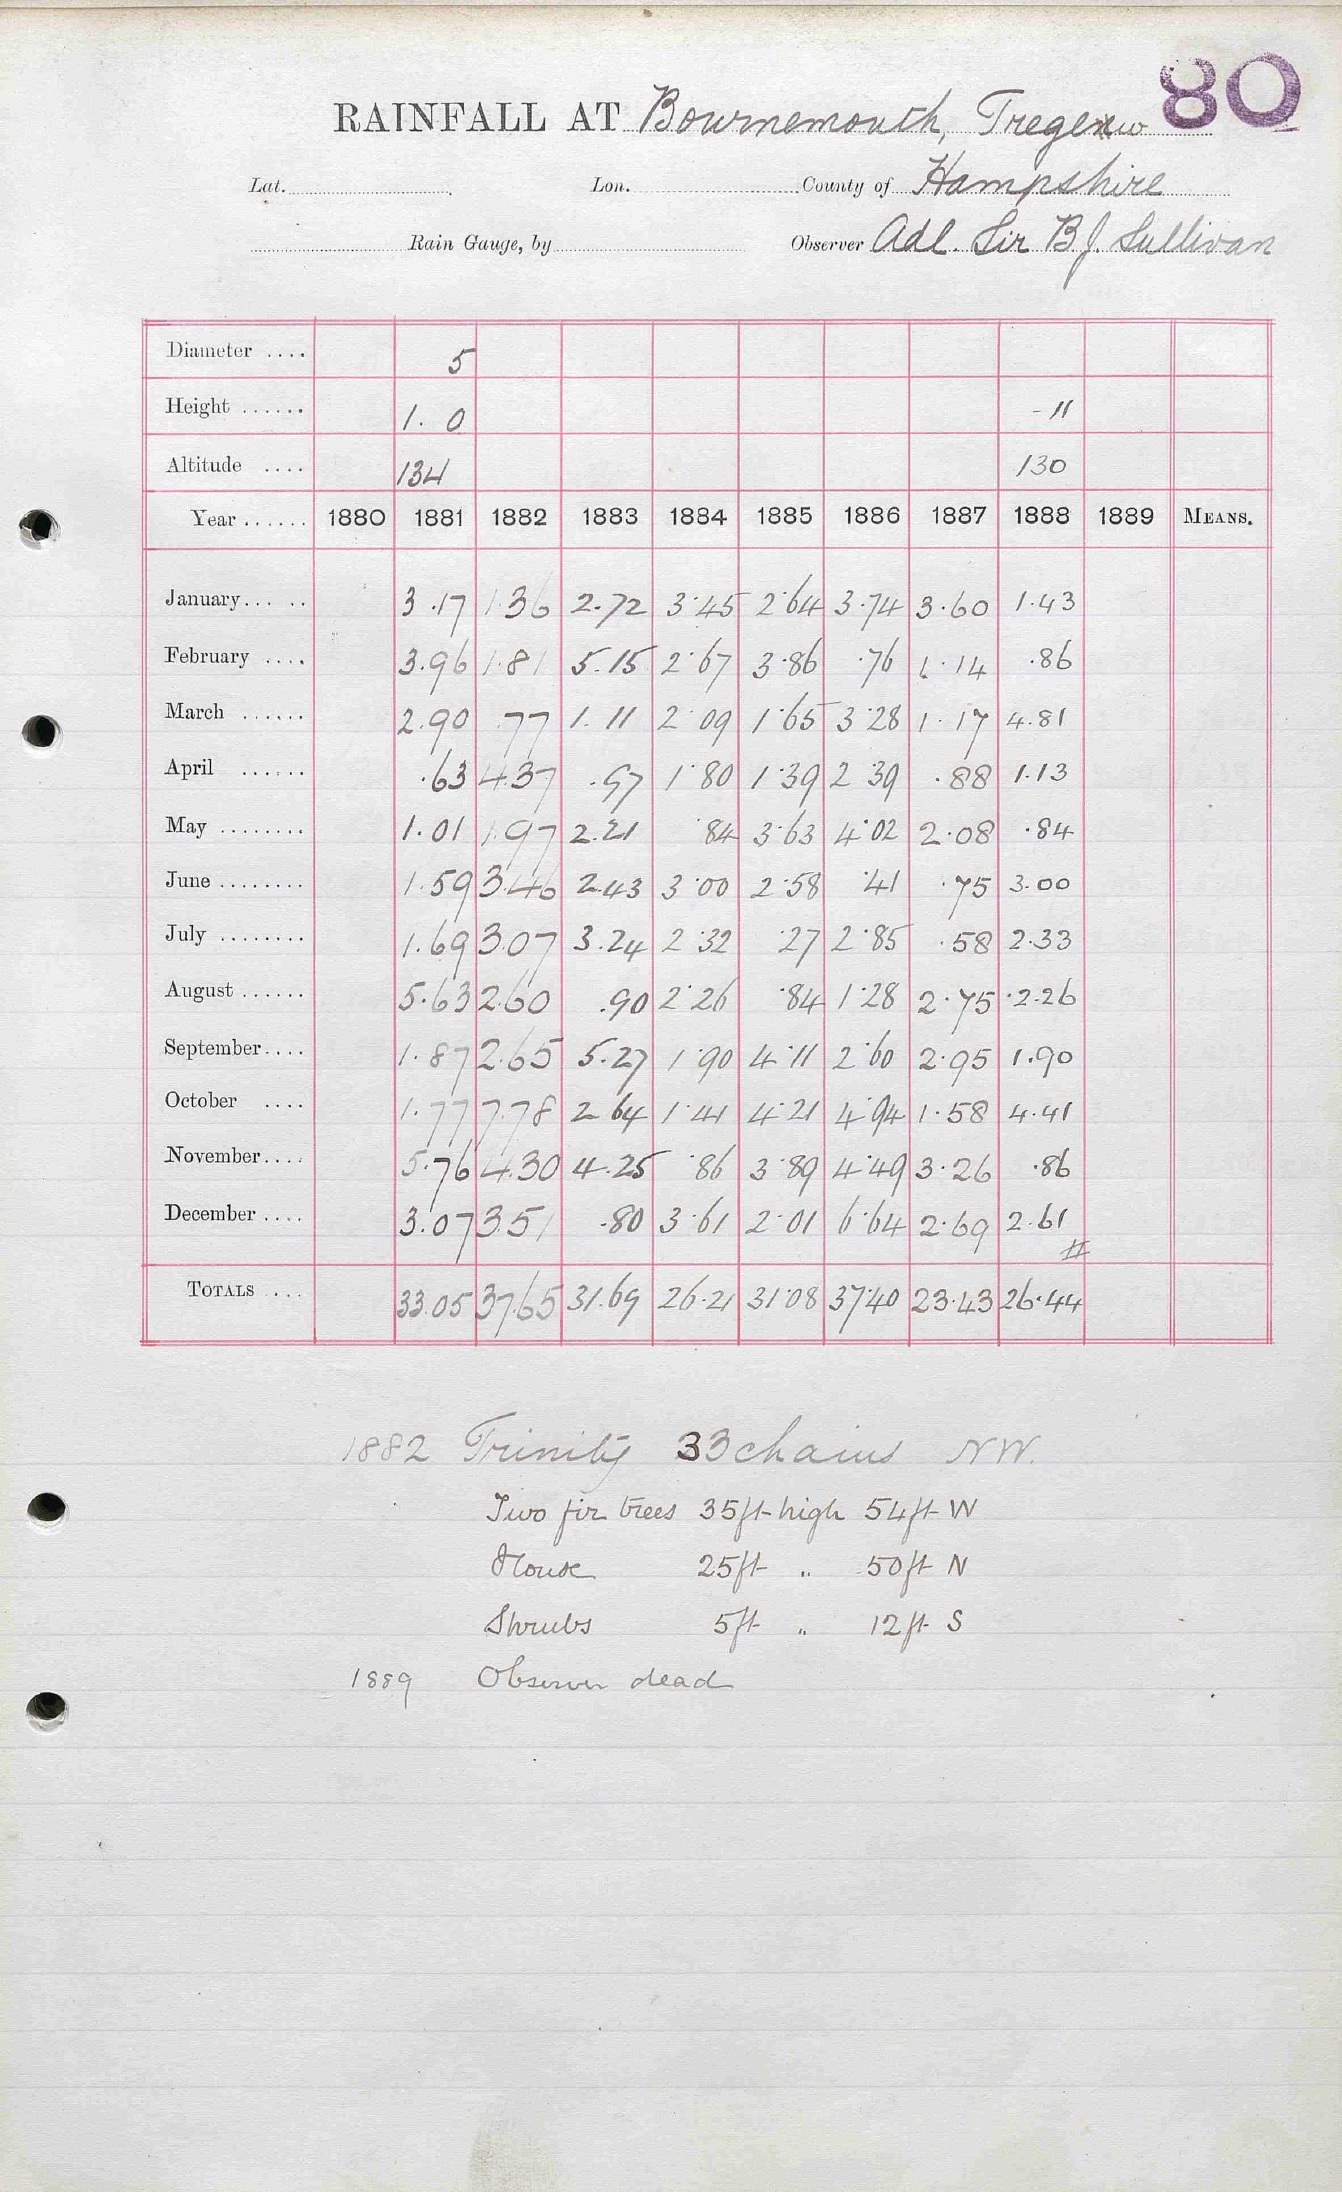 80
RAINFALL AT Bournemouth, Tregenw
Lat. Lon. County of Hampshire
Rain Gauge, by Observer Adl. Sir B J. Sullivan
Diameter .... 5
Height ...... 1. 0 - 11
Altitude .... 134 130
Year ...... 1880 1881 1882 1883 1884 1885 1886 1887 1888 1889 MEANS.
January... .. 3.17 1.36 2.72 3.45 2.64 3.74 3.60 1.43
February .... 3.96 1.81 5.15 2.67 3.86 .76 1.14 .86
March ...... 2.90 .77 1.11 2.09 1.65 3.28 1.17 4.81
April ...... .63 4.37 .97 1.80 1.39 2.39 .88 1.13
May ........ 1.01 1.97 2.21 .84 3.63 4.02 2.08 .84
June ........ 1.59 3.46 2.43 3.00 2.58 .41 .75 3.00
July ........ 1.69 3.07 3.24 2.32 .27 2.85 .58 2.33
August ...... 5.63 2.60 .90 2.26 .84 1.28 2.75 2.26
September.... 1.87 2.65 5.27 1.90 4.11 2.60 2.95 1.90
October .... 1.77 7.78 2.64 1.41 4.21 4.94 1.58 4.41
November.... 5.76 4.30 4.25 .86 3.89 4.49 3.26 .86
December .... 3.07 3.51 .80 3.61 2.01 6.64 2.69 2.61
TOTALS .... 33.05 37.65 31.69 26.21 31.08 37.40 23.43 26.44
1882 Trinity 33 chains NW.
Two fir trees 35ft high 54ft W
House 25ft " 50ft N
Shrubs 5ft " 12ft S
1889 Observer dead